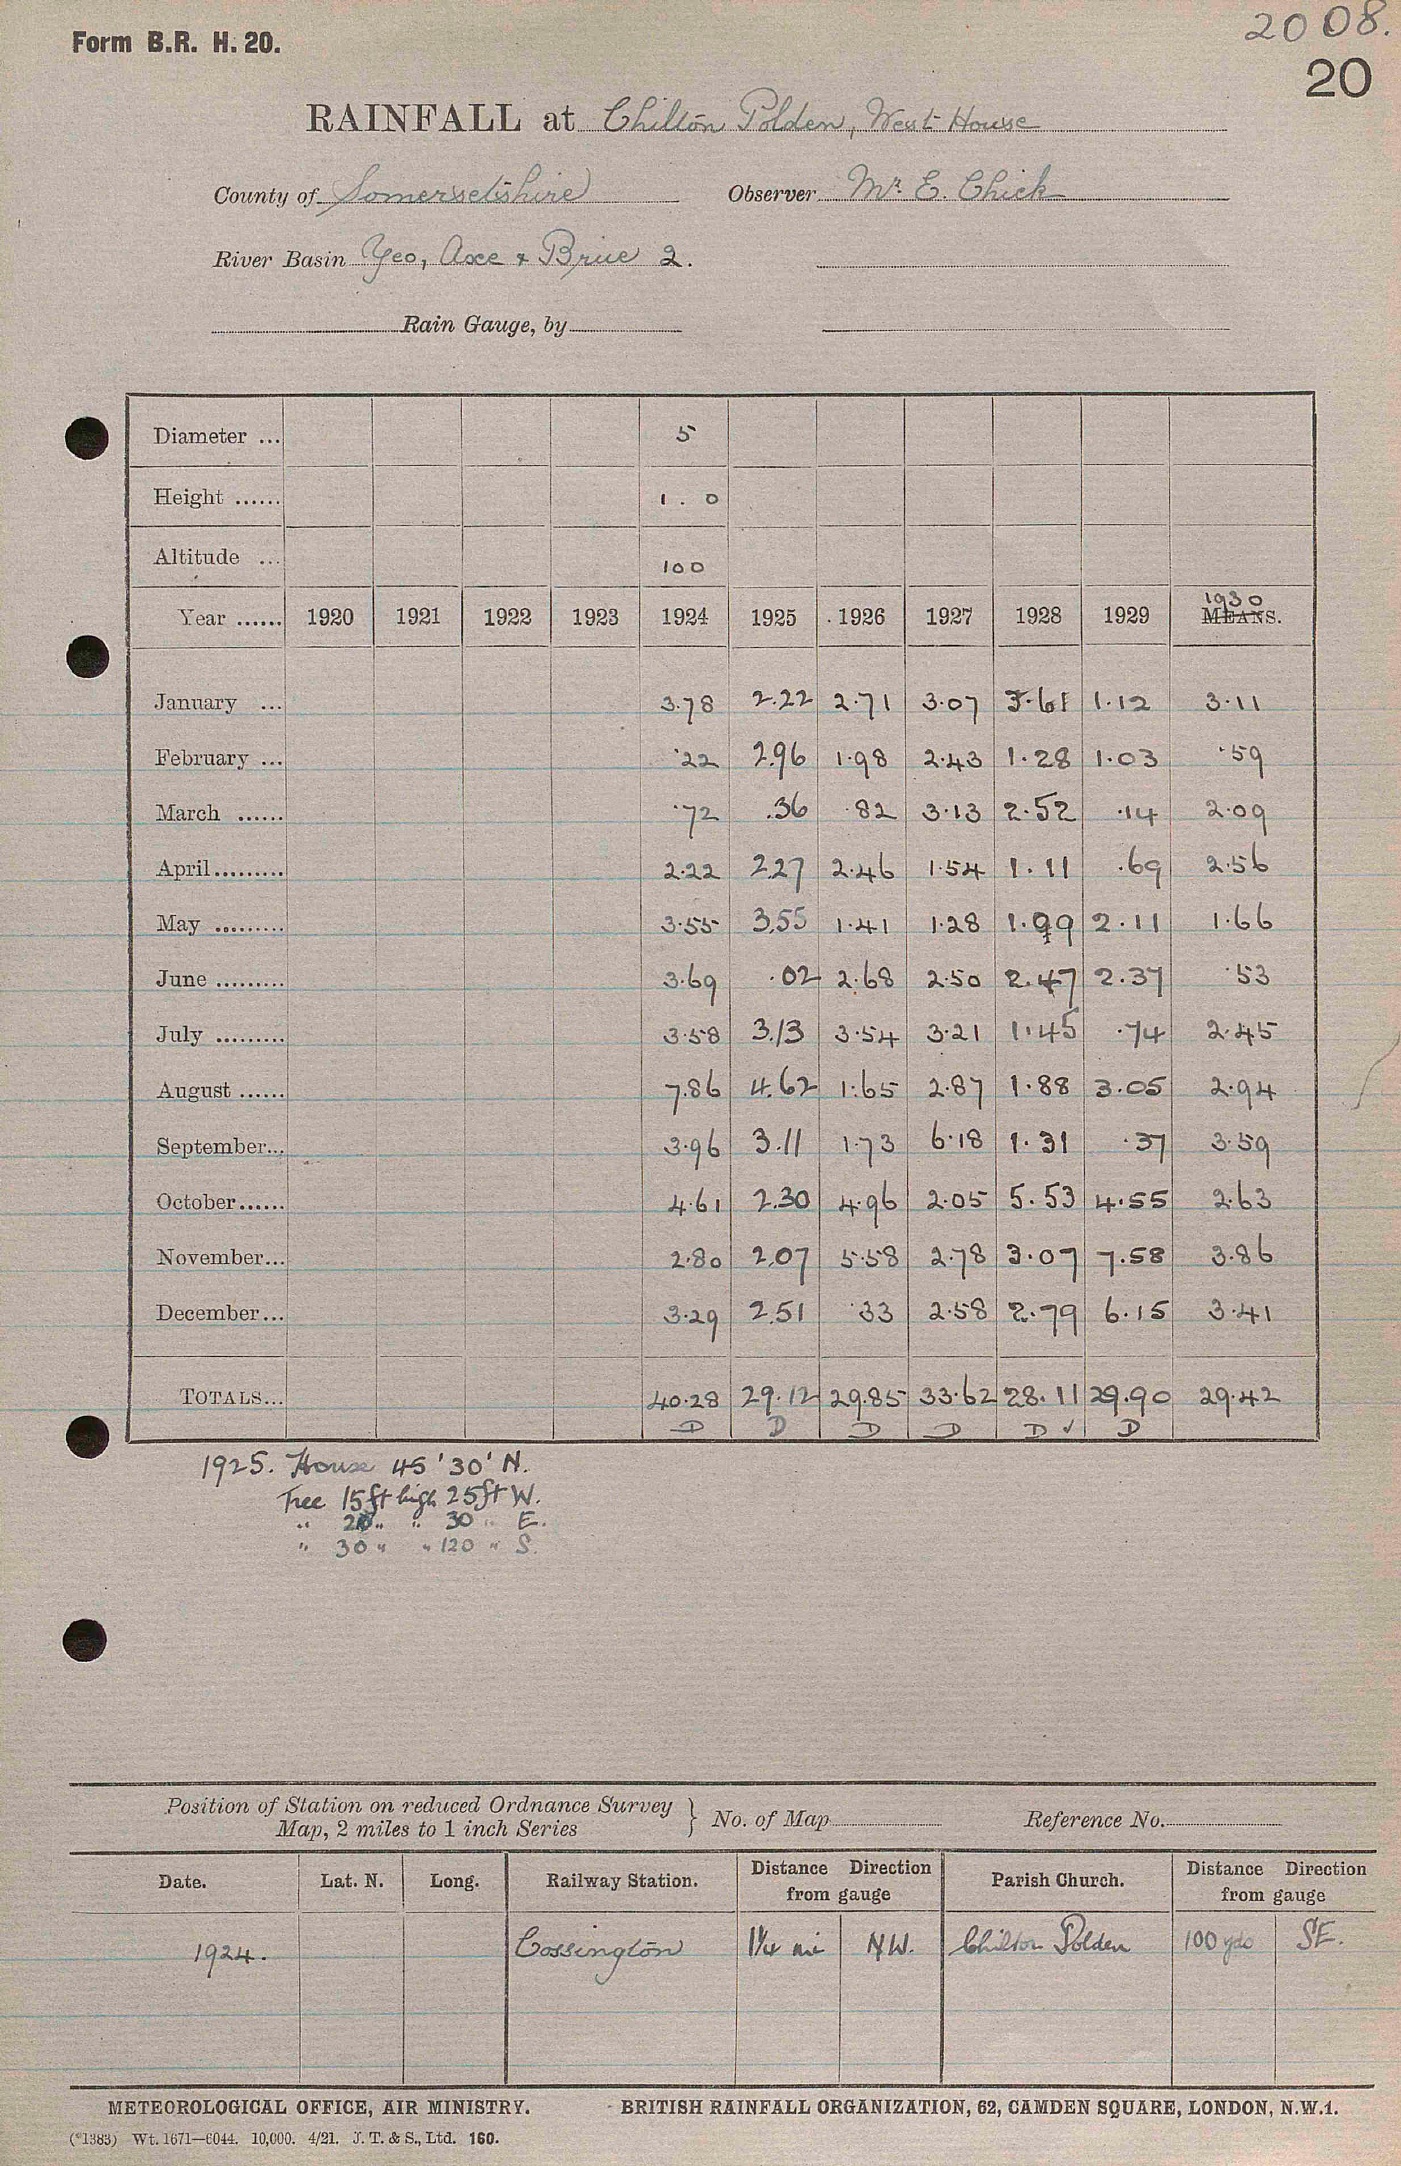 Form B.R. H. 20.
2008.
20
RAINFALL at Chilton Polden, West House
County of Somersetshire Observer Mr. E. Chick
River Basin Yeo, Axe & Brue 2.
Rain Gauge, by
Diameter ... 5
Height ...... 1 . 0
Altitude ... 100
Year ...... 1920 1921 1922 1923 1924 1925 1926 1927 1928 1929 1930 MEANS.
January ... 3.78 2.22 2.71 3.07 3.61 1.12 3.11
February ... .22 2.96 1.98 2.43 1.28 1.03 .59
March ...... .72 .36 .82 3.13 2.52 .14 2.09
April ......... 2.22 2.27 2.46 1.54 1.11 .69 2.56
May ......... 3.55 3.55 1.41 1.28 1.09 2.11 1.66
June ......... 3.69 .02 2.68 2.50 2.47 2.37 .53
July ......... 3.58 3.13 3.54 3.21 1.45 .74 2.45
August ...... 7.86 4.62 1.65 2.87 1.88 3.05 2.94
September... 3.96 3.11 1.73 6.18 1.31 .37 3.59
October...... 4.61 2.30 4.96 2.05 5.53 4.55 2.63
November... 2.80 2.07 5.58 2.78 3.07 7.58 3.86
December... 3.29 2.51 .33 2.58 2.79 6.15 3.41
TOTALS... 40.28 29.12 29.85 33.62 28.11 29.90 29.42
D D D D D ✓ D
1925. House 45' 30' N.
Tree 15ft high 25ft W.
" 20 " " 30 " E.
" 30 " " 120 " S.
Position of Station on reduced Ordnance Survey
Map, 2 miles to 1 inch Series } No. of Map Reference No.
Date. Lat. N. Long. Railway Station. Distance Direction from gauge Parish Church. Distance Direction from gauge
1924. Cossington 1¼ mi N.W. Chilton Polden 100 yds S.E.
METEOROLOGICAL OFFICE, AIR MINISTRY. BRITISH RAINFALL ORGANIZATION, 62, CAMDEN SQUARE, LONDON, N.W.1.
(*1383) Wt. 1671—6044. 10,000. 4/21. J. T. & S., Ltd. 160.